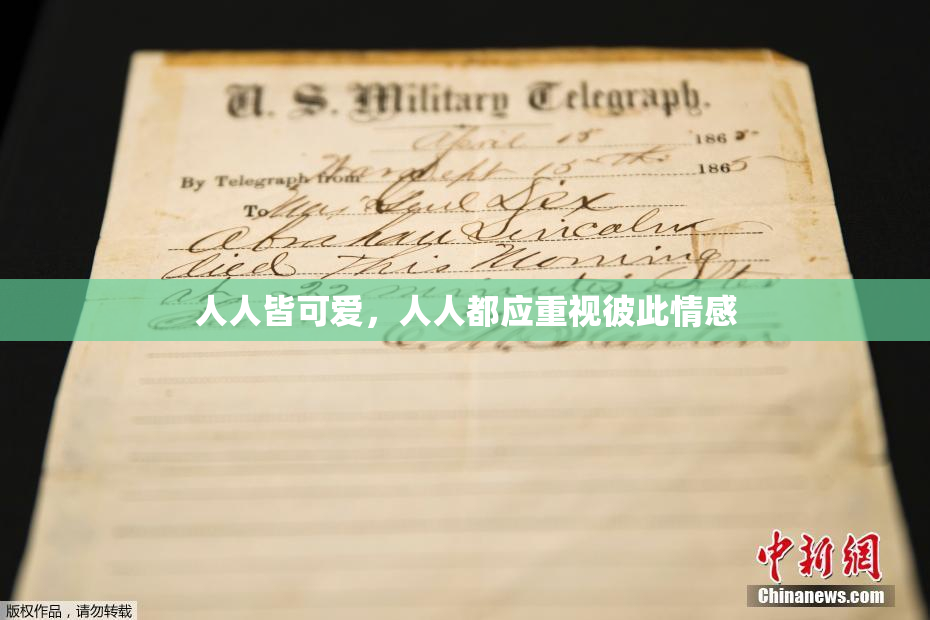 U. S. Military Telegraph.
April 15 1865
By Telegraph from War Dept 15th 1865
To Maj Genl Dix
Abraham Lincoln
died This Morning
at 22 minutes after
人人皆可爱，人人都应重视彼此情感
中新网
Chinanews.com
版权作品，请勿转载